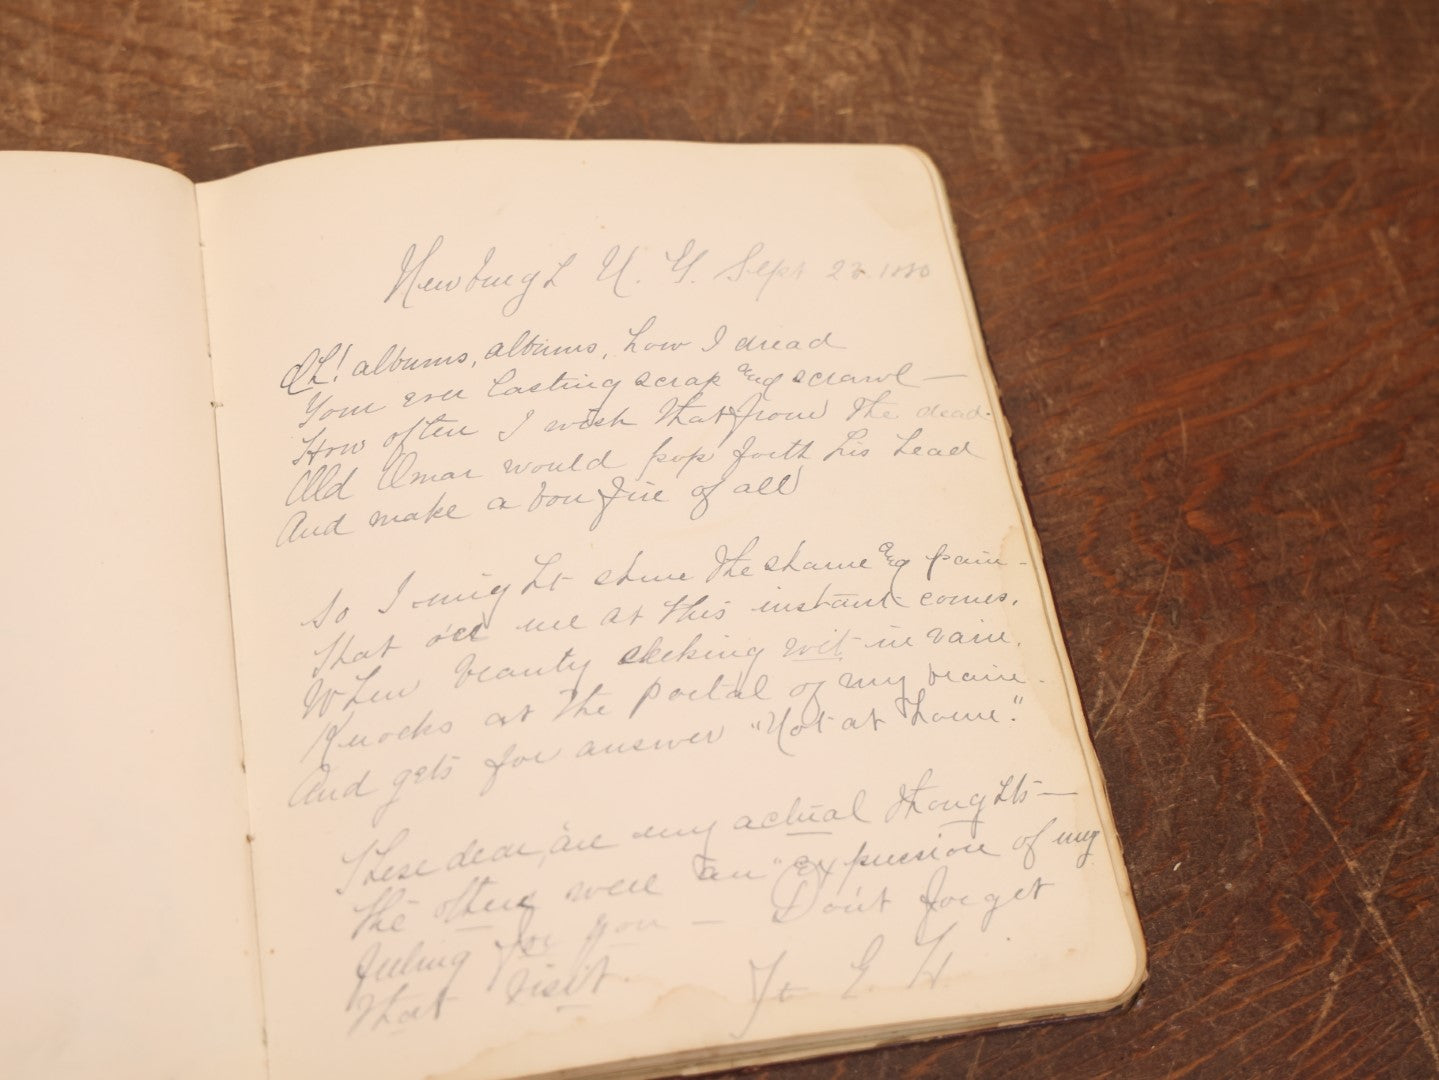 Newburgh N. Y. Sept 1880
Oh! albums, albums, how I dread
Your ever lasting scrap and scrawl —
How often I wish that from the dead
Old Omar would pop forth his head
And make a bon fire of all
So I might shun the shame and pain -
That o'er me at this instant comes.
When beauty seeking wit in vain.
Knocks at the portal of my brain -
And gets for answer "Not at home."
These dear, are my actual thoughts —
The others were an "expression of my
feeling for you — Don't forget
that visit.
E. H.